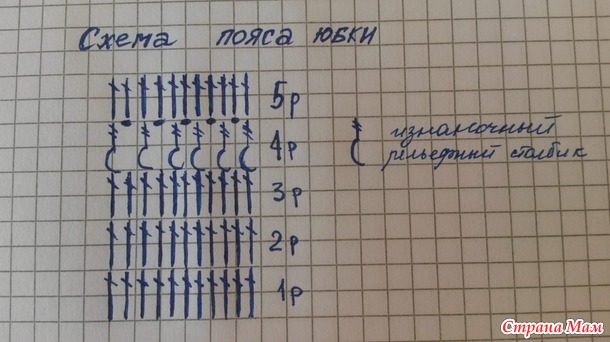 Схема пояса юбки
5р
4р
3р
2р
1р
изнаночный
рельефный столбик
Страна Мам